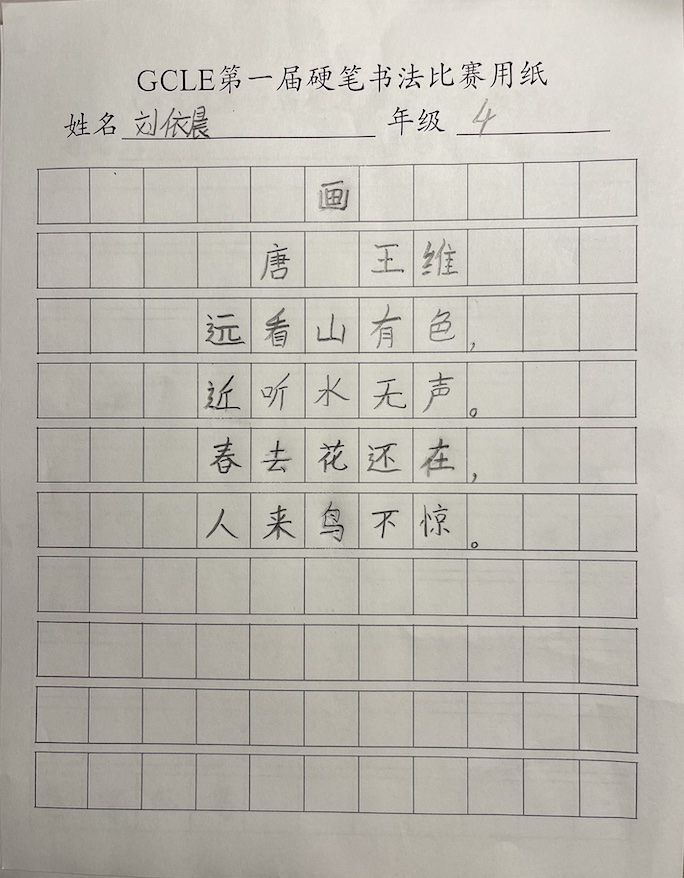 GCLE第一届硬笔书法比赛用纸
姓名 刘依晨 年级 4
画
唐 王维
远看山有色，
近听水无声。
春去花还在，
人来鸟不惊。